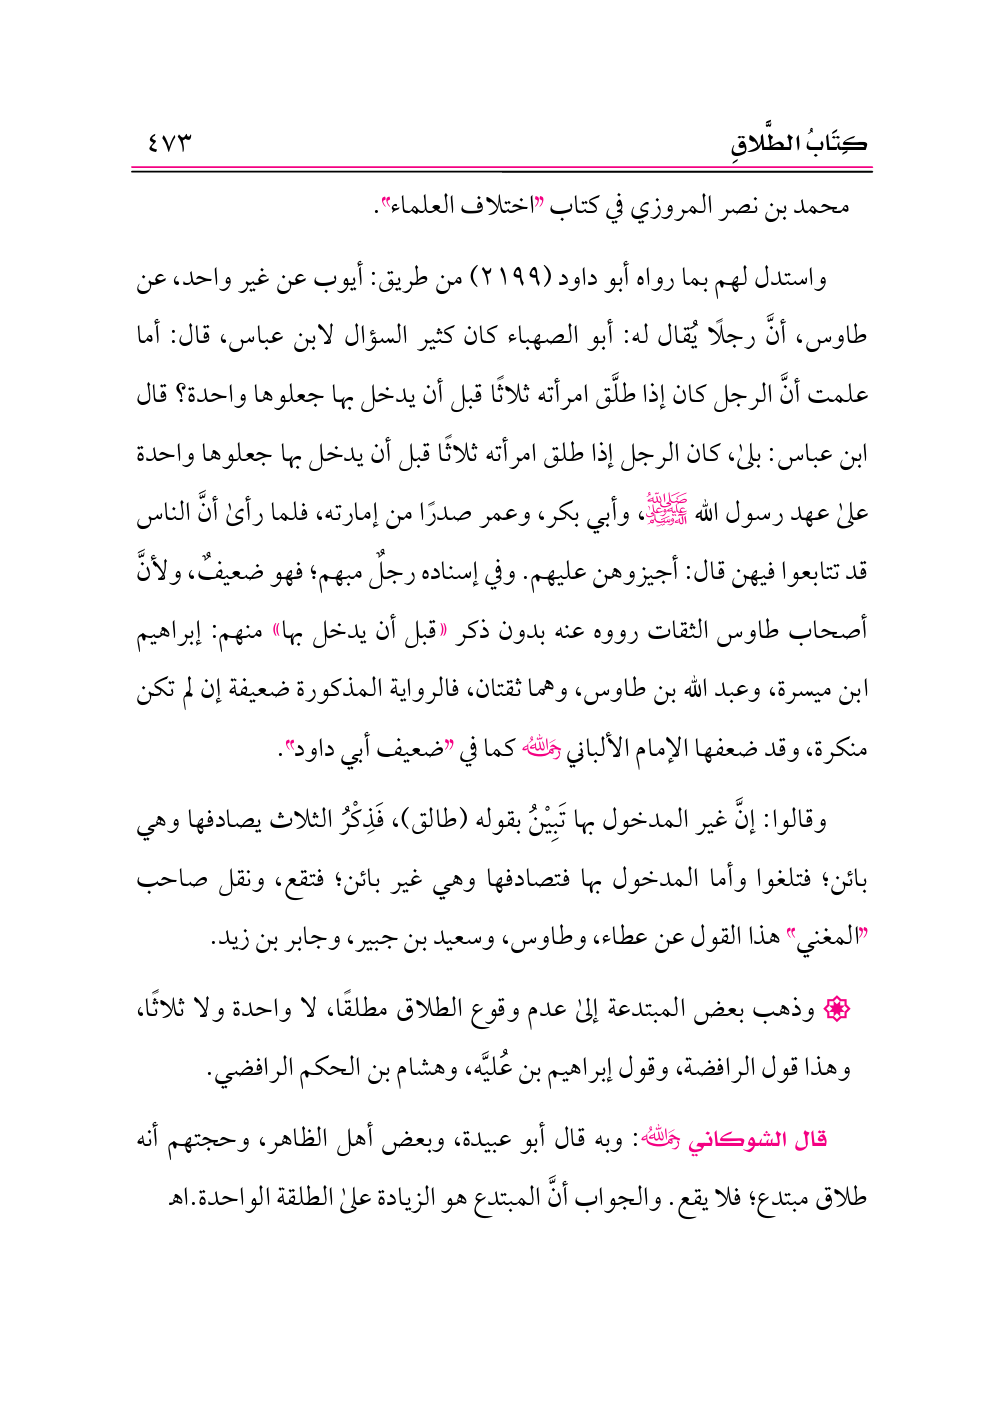 كِتَابُ الطَّلاقِ ٤٧٣
محمد بن نصر المروزي في كتاب "اختلاف العلماء".
واستدل لهم بما رواه أبو داود (٢١٩٩) من طريق: أيوب عن غير واحد، عن
طاوس، أنَّ رجلًا يُقال له: أبو الصهباء كان كثير السؤال لابن عباس، قال: أما
علمت أنَّ الرجل كان إذا طلَّق امرأته ثلاثًا قبل أن يدخل بها جعلوها واحدة؟ قال
ابن عباس: بلىٰ، كان الرجل إذا طلق امرأته ثلاثًا قبل أن يدخل بها جعلوها واحدة
علىٰ عهد رسول الله ﷺ، وأبي بكر، وعمر صدرًا من إمارته، فلما رأىٰ أنَّ الناس
قد تتابعوا فيهن قال: أجيزوهن عليهم. وفي إسناده رجلٌ مبهم؛ فهو ضعيفٌ، ولأنَّ
أصحاب طاوس الثقات رووه عنه بدون ذكر «قبل أن يدخل بها» منهم: إبراهيم
ابن ميسرة، وعبد الله بن طاوس، وهما ثقتان، فالرواية المذكورة ضعيفة إن لم تكن
منكرة، وقد ضعفها الإمام الألباني رحمه الله كما في "ضعيف أبي داود".
وقالوا: إنَّ غير المدخول بها تَبِيْنُ بقوله (طالق)، فَذِكْرُ الثلاث يصادفها وهي
بائن؛ فتلغوا وأما المدخول بها فتصادفها وهي غير بائن؛ فتقع، ونقل صاحب
"المغني" هذا القول عن عطاء، وطاوس، وسعيد بن جبير، وجابر بن زيد.
۞ وذهب بعض المبتدعة إلىٰ عدم وقوع الطلاق مطلقًا، لا واحدة ولا ثلاثًا،
وهذا قول الرافضة، وقول إبراهيم بن عُليَّه، وهشام بن الحكم الرافضي.
قال الشوكاني رحمه الله: وبه قال أبو عبيدة، وبعض أهل الظاهر، وحجتهم أنه
طلاق مبتدع؛ فلا يقع. والجواب أنَّ المبتدع هو الزيادة علىٰ الطلقة الواحدة.اهـ